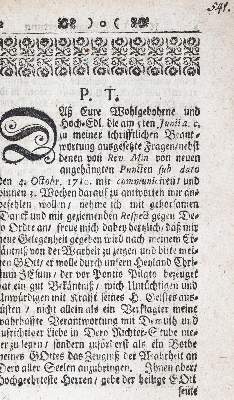 541.
) o (
P. T.
Aß Eure Wohlgebohrne und
Hoch-Edl. die am 5ten Junii a. c.
zu meiner schrifftlichen Verant-
wortung ausgesetzte Fragen/nebst
denen von Rev. Min von neuen
angehängten Puncten sub dato
den 4. Octobr. mir communiciren/ und
binnen 2. Wochen darauf zu antworten mir an-
befehlen wollen / nehme ich mit gehorsamen
Danck und mit geziemenden Respect gegen De-
ro Ordre an/ freue mich dabey hertzlich/ daß mir
neue Gelegenheit gegeben wird nach meinem Er-
käntniß von der Warheit zu zeugen und bitte mei-
nen GOtt/ er wolle durch unsern Heyland Chri-
stum JEsum / der vor Pontio Pilato bezeuget
hat ein gut Bekäntniß / mich Untüchtigen und
Unwürdigen mit Krafft seines H. Geistes aus-
rüsten / nicht allein als ein Beklagter meine
wahrhaffte Verantwortung mit Demuth und
aufrichtiger Liebe in Dero Richter-Stube nie-
der zu legen/ sondern zuförderst als ein Bothe
meines GOttes das Zeugniß der Wahrheit an
Dero aller Seelen anzubringen. Ihnen aber/
Hochgeehrteste Herren/ gebe der heilige GOtt
heute